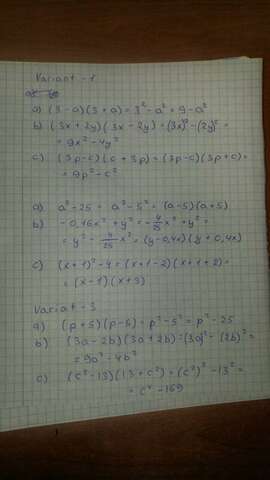 Variant - 1
a) (3-a)(3+a) = 3² - a² = 9 - a²
b) (3x+2y)(3x-2y) = (3x)² - (2y)² =
= 9x² - 4y²
c) (3p-c)(c+3p) = (3p-c)(3p+c) =
= 9p² - c²
a) a² - 25 = a² - 5² = (a-5)(a+5)
b) -0,16x² + y² = -4/25 x² + y² =
= y² - 4/25 x² = (y-0,4x)(y+0,4x)
c) (x+1)² - 4 = (x+1-2)(x+1+2) =
= (x-1)(x+3)
Variat - 3
a) (p+5)(p-5) = p² - 5² = p² - 25
b) (3a-2b)(3a+2b) = (3a)² - (2b)² =
= 9a² - 4b²
c) (c²-13)(13+c²) = (c²)² - 13² =
= c⁴ - 169